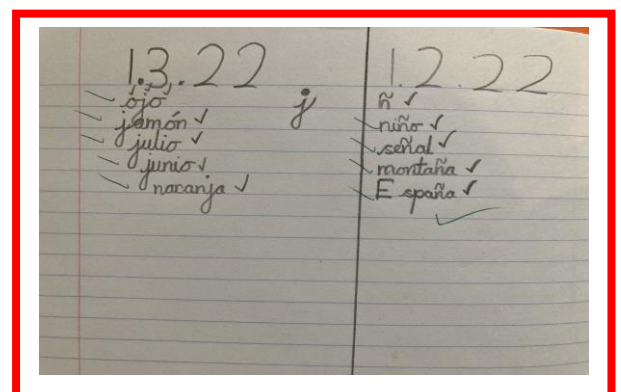 1.3.22
ojo
jamón
julio
junio
naranja
j
1.2.22
ñ
niño
señal
montaña
España